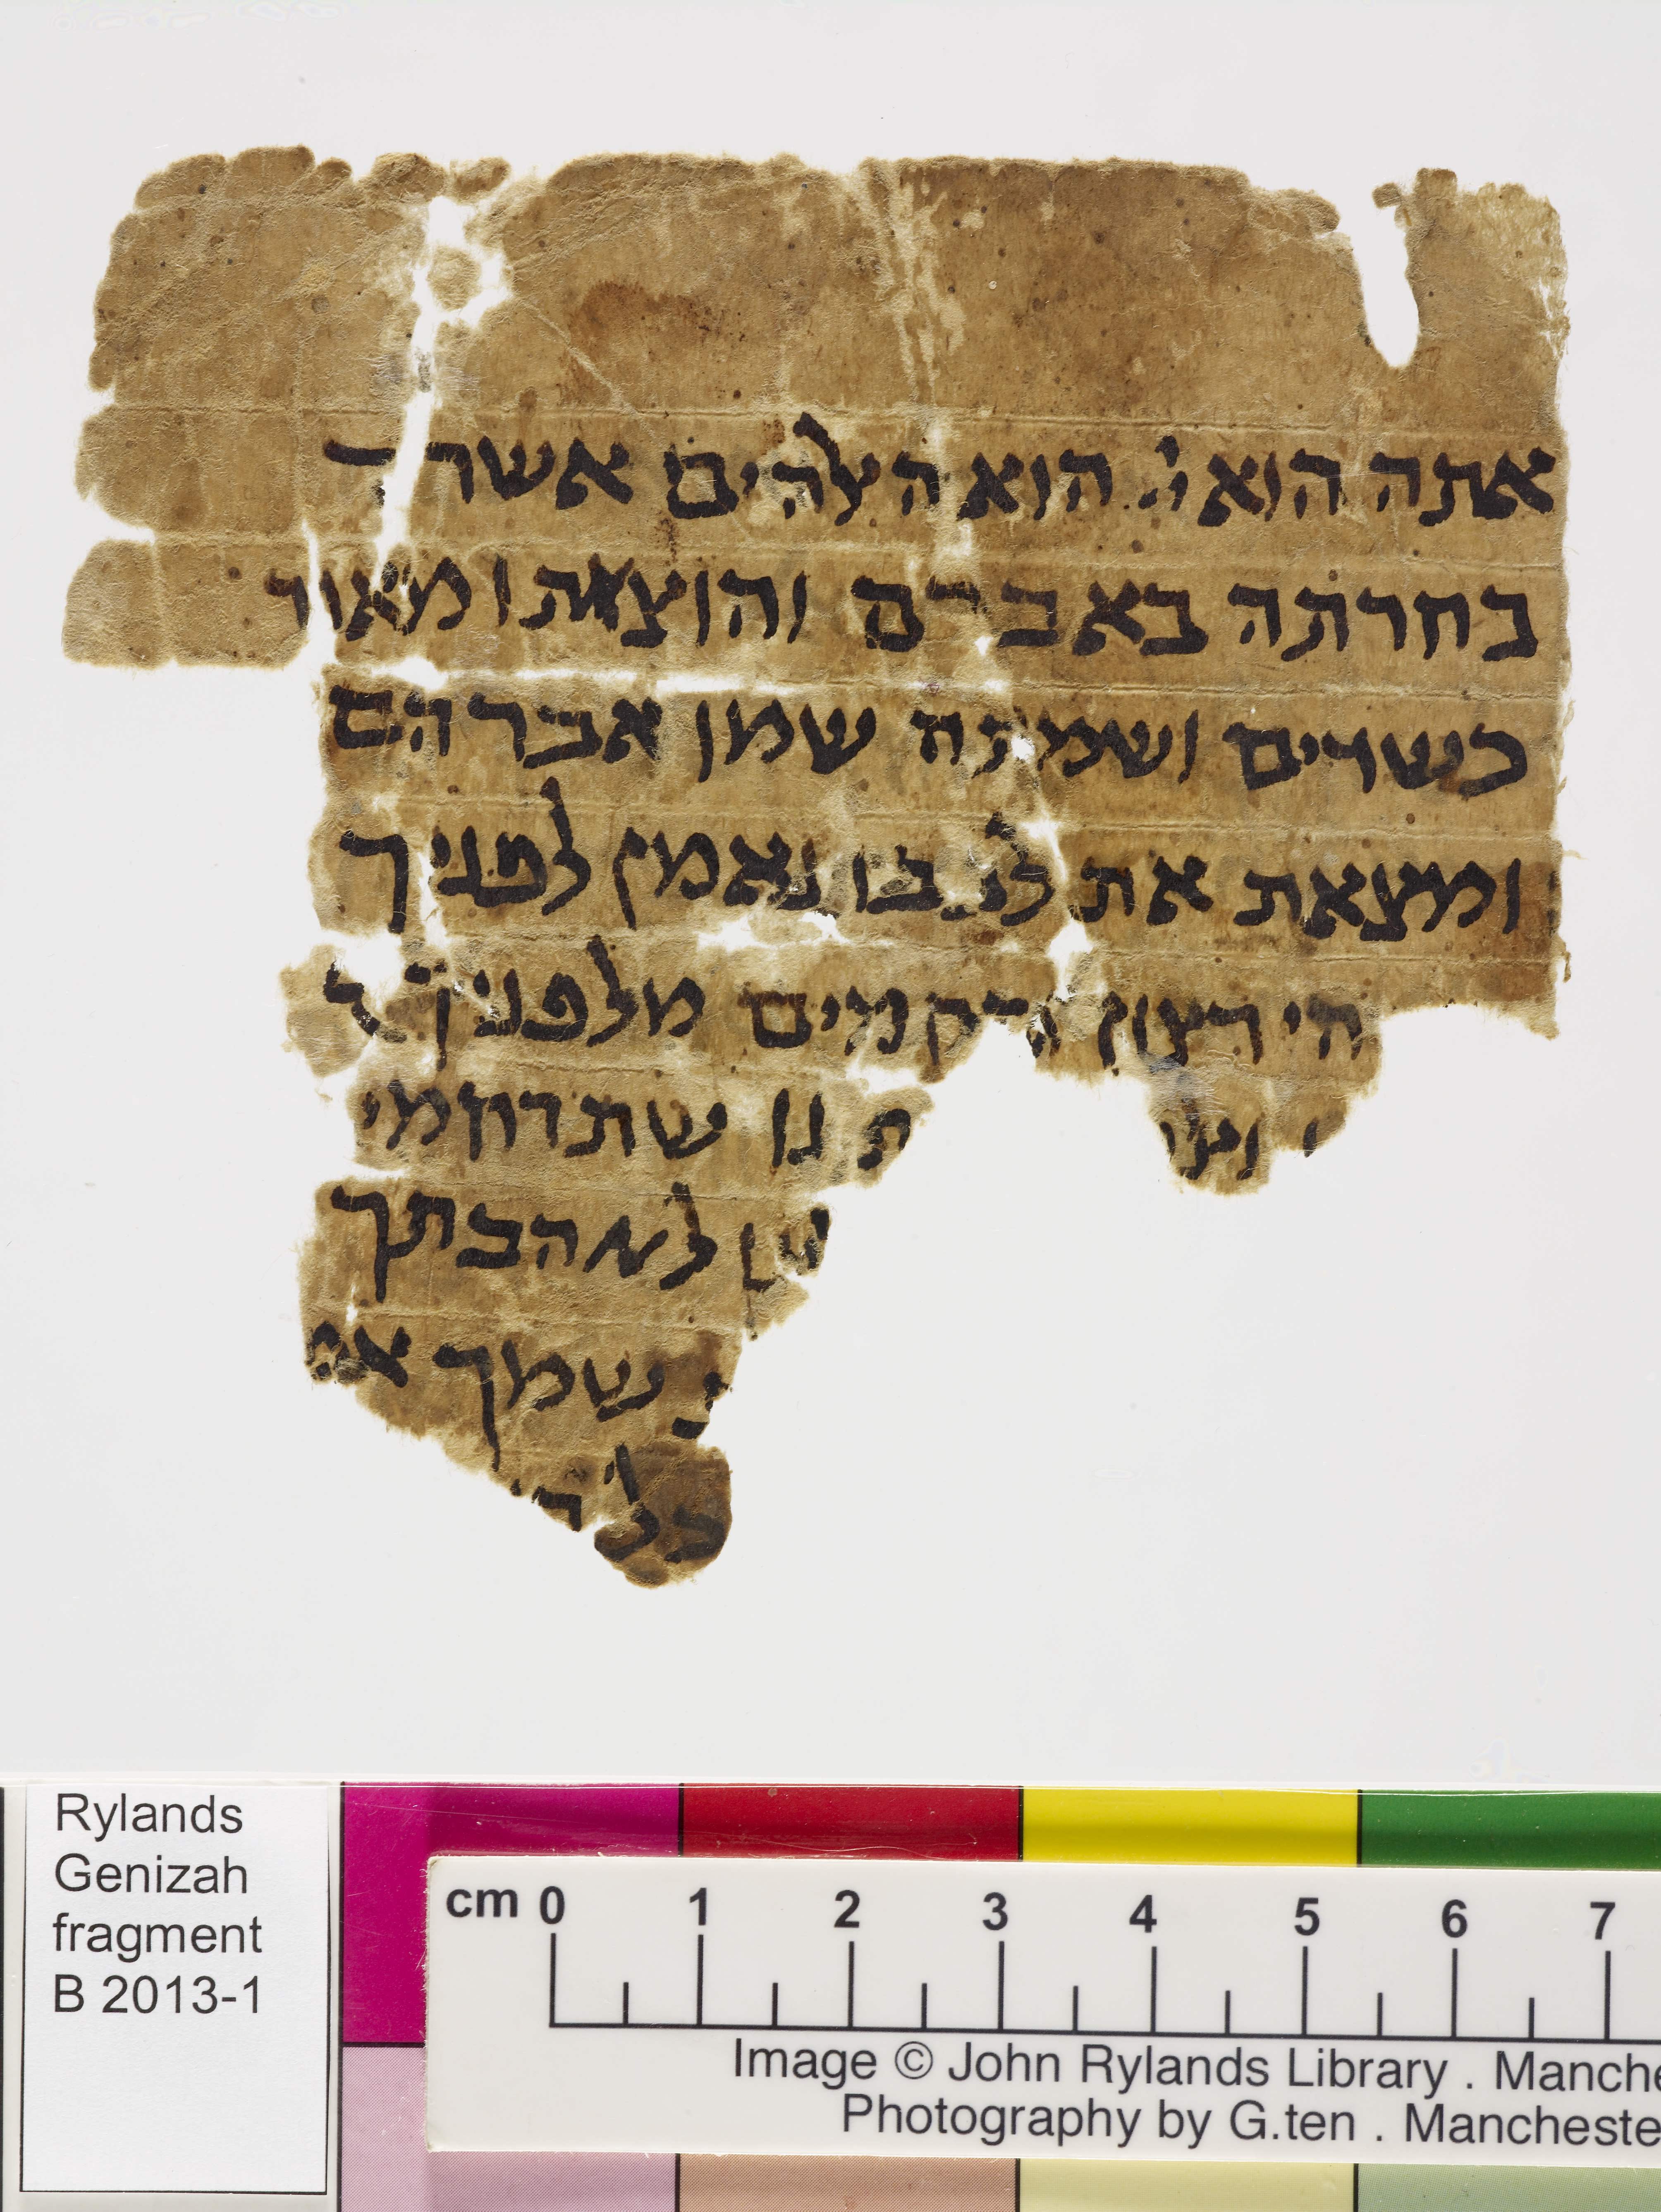 אתה הוא יי הוא האלהים אשר
בחרתה באברם והוצאתו מאור
כשדים ושמתה שמו אברהם
ומצאת את לבבו נאמן לפניך
יהי רצון מלפניך
שתרחמי
לאהבתיך
שמך את
כל
Rylands
Genizah
fragment
B 2013-1
cm 0 1 2 3 4 5 6 7
Image © John Rylands Library . Manche
Photography by G.ten . Mancheste